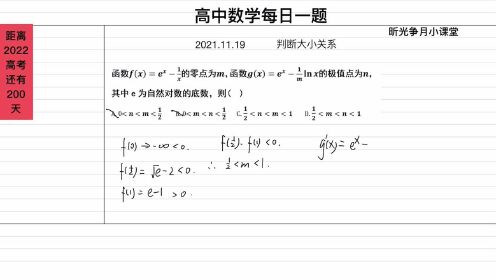 高中数学每日一题
昕光争月小课堂
距离
2022
高考
还有
200
天
2021.11.19 判断大小关系
函数f(x) = eˣ − 1/x的零点为m, 函数g(x) = eˣ − 1/m ln x的极值点为n,
其中 e 为自然对数的底数，则（ ）
A.0<n<m<1/2 B.0<m<n<1/2 C.1/2<n<m<1 D.1/2<m<n<1
f(0)→-∞<0. f(1/2)·f(1)<0. g'(x)=eˣ−
f(1/2)=√e-2<0. ∴ 1/2<m<1.
f(1)=e-1>0.